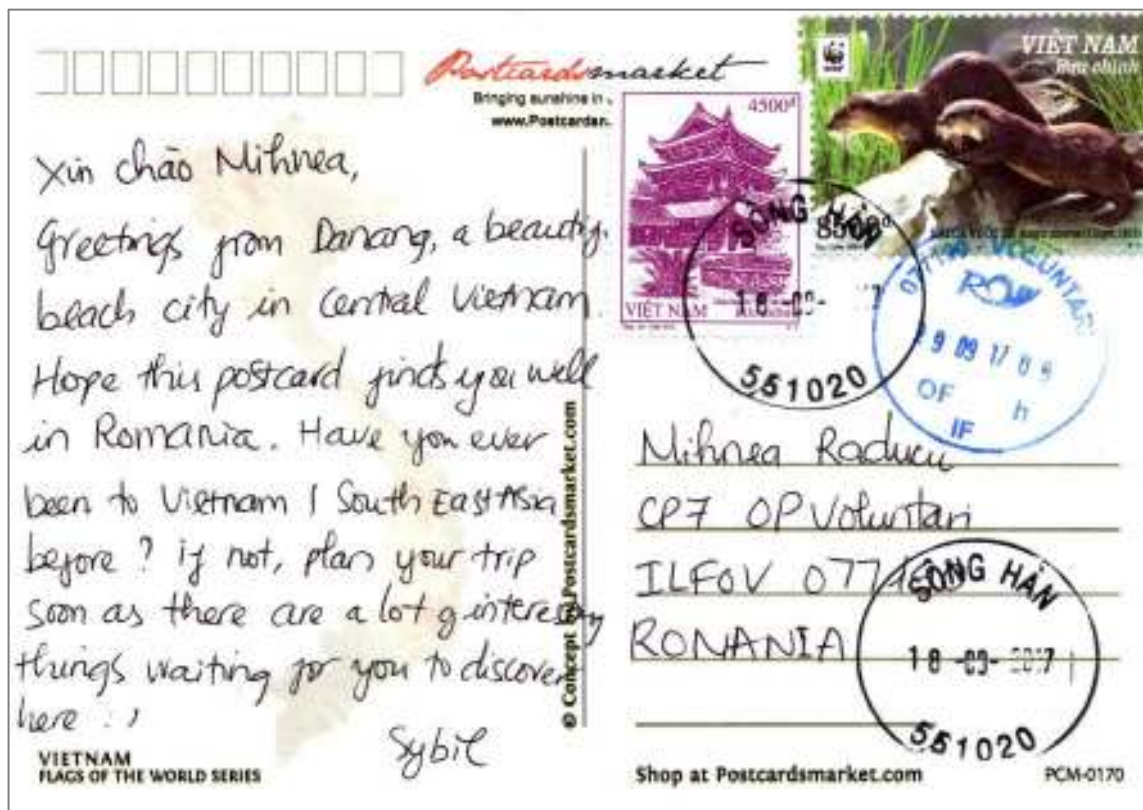 Postcardsmarket
Bringing sunshine in
www.Postcardsm
Xin chào Mihnea,
Greetings from Danang, a beautiful
beach city in Central Vietnam.
Hope this postcard finds you well
in Romania. Have you ever
been to Vietnam / South East Asia
before? if not, plan your trip
soon as there are a lot of interesting
things waiting for you to discover
here :)
Sybil
VIETNAM
FLAGS OF THE WORLD SERIES
© Concept by Postcardsmarket.com
4500đ
VIỆT NAM
VIỆT NAM
Bưu chính
8500đ
SÔNG HÀN
551020
VOLUNTARI
OF
h
IF
Mihnea Raducu
CP7 OP Voluntari
ILFOV
RONANIA
SÔNG HÀN
551020
Shop at Postcardsmarket.com
PCM-0170